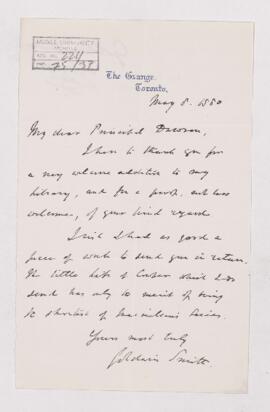 McGILL UNIVERSITY
ARCHIVES
ACC. NO. 221/
REF. 25/37
The Grange.
Toronto,
May 8. 1880
My dear Principal Dawson,
I have to thank you for
a very welcome addition to my
library, and for a proof, not less
welcome, of your kind regard.
I wish I had as good a
piece of work to send you in return.
The little life of Cowper which I do
send has only the merit of being
the shortest of Macmillan's Series.
Yours most truly
Goldwin Smith